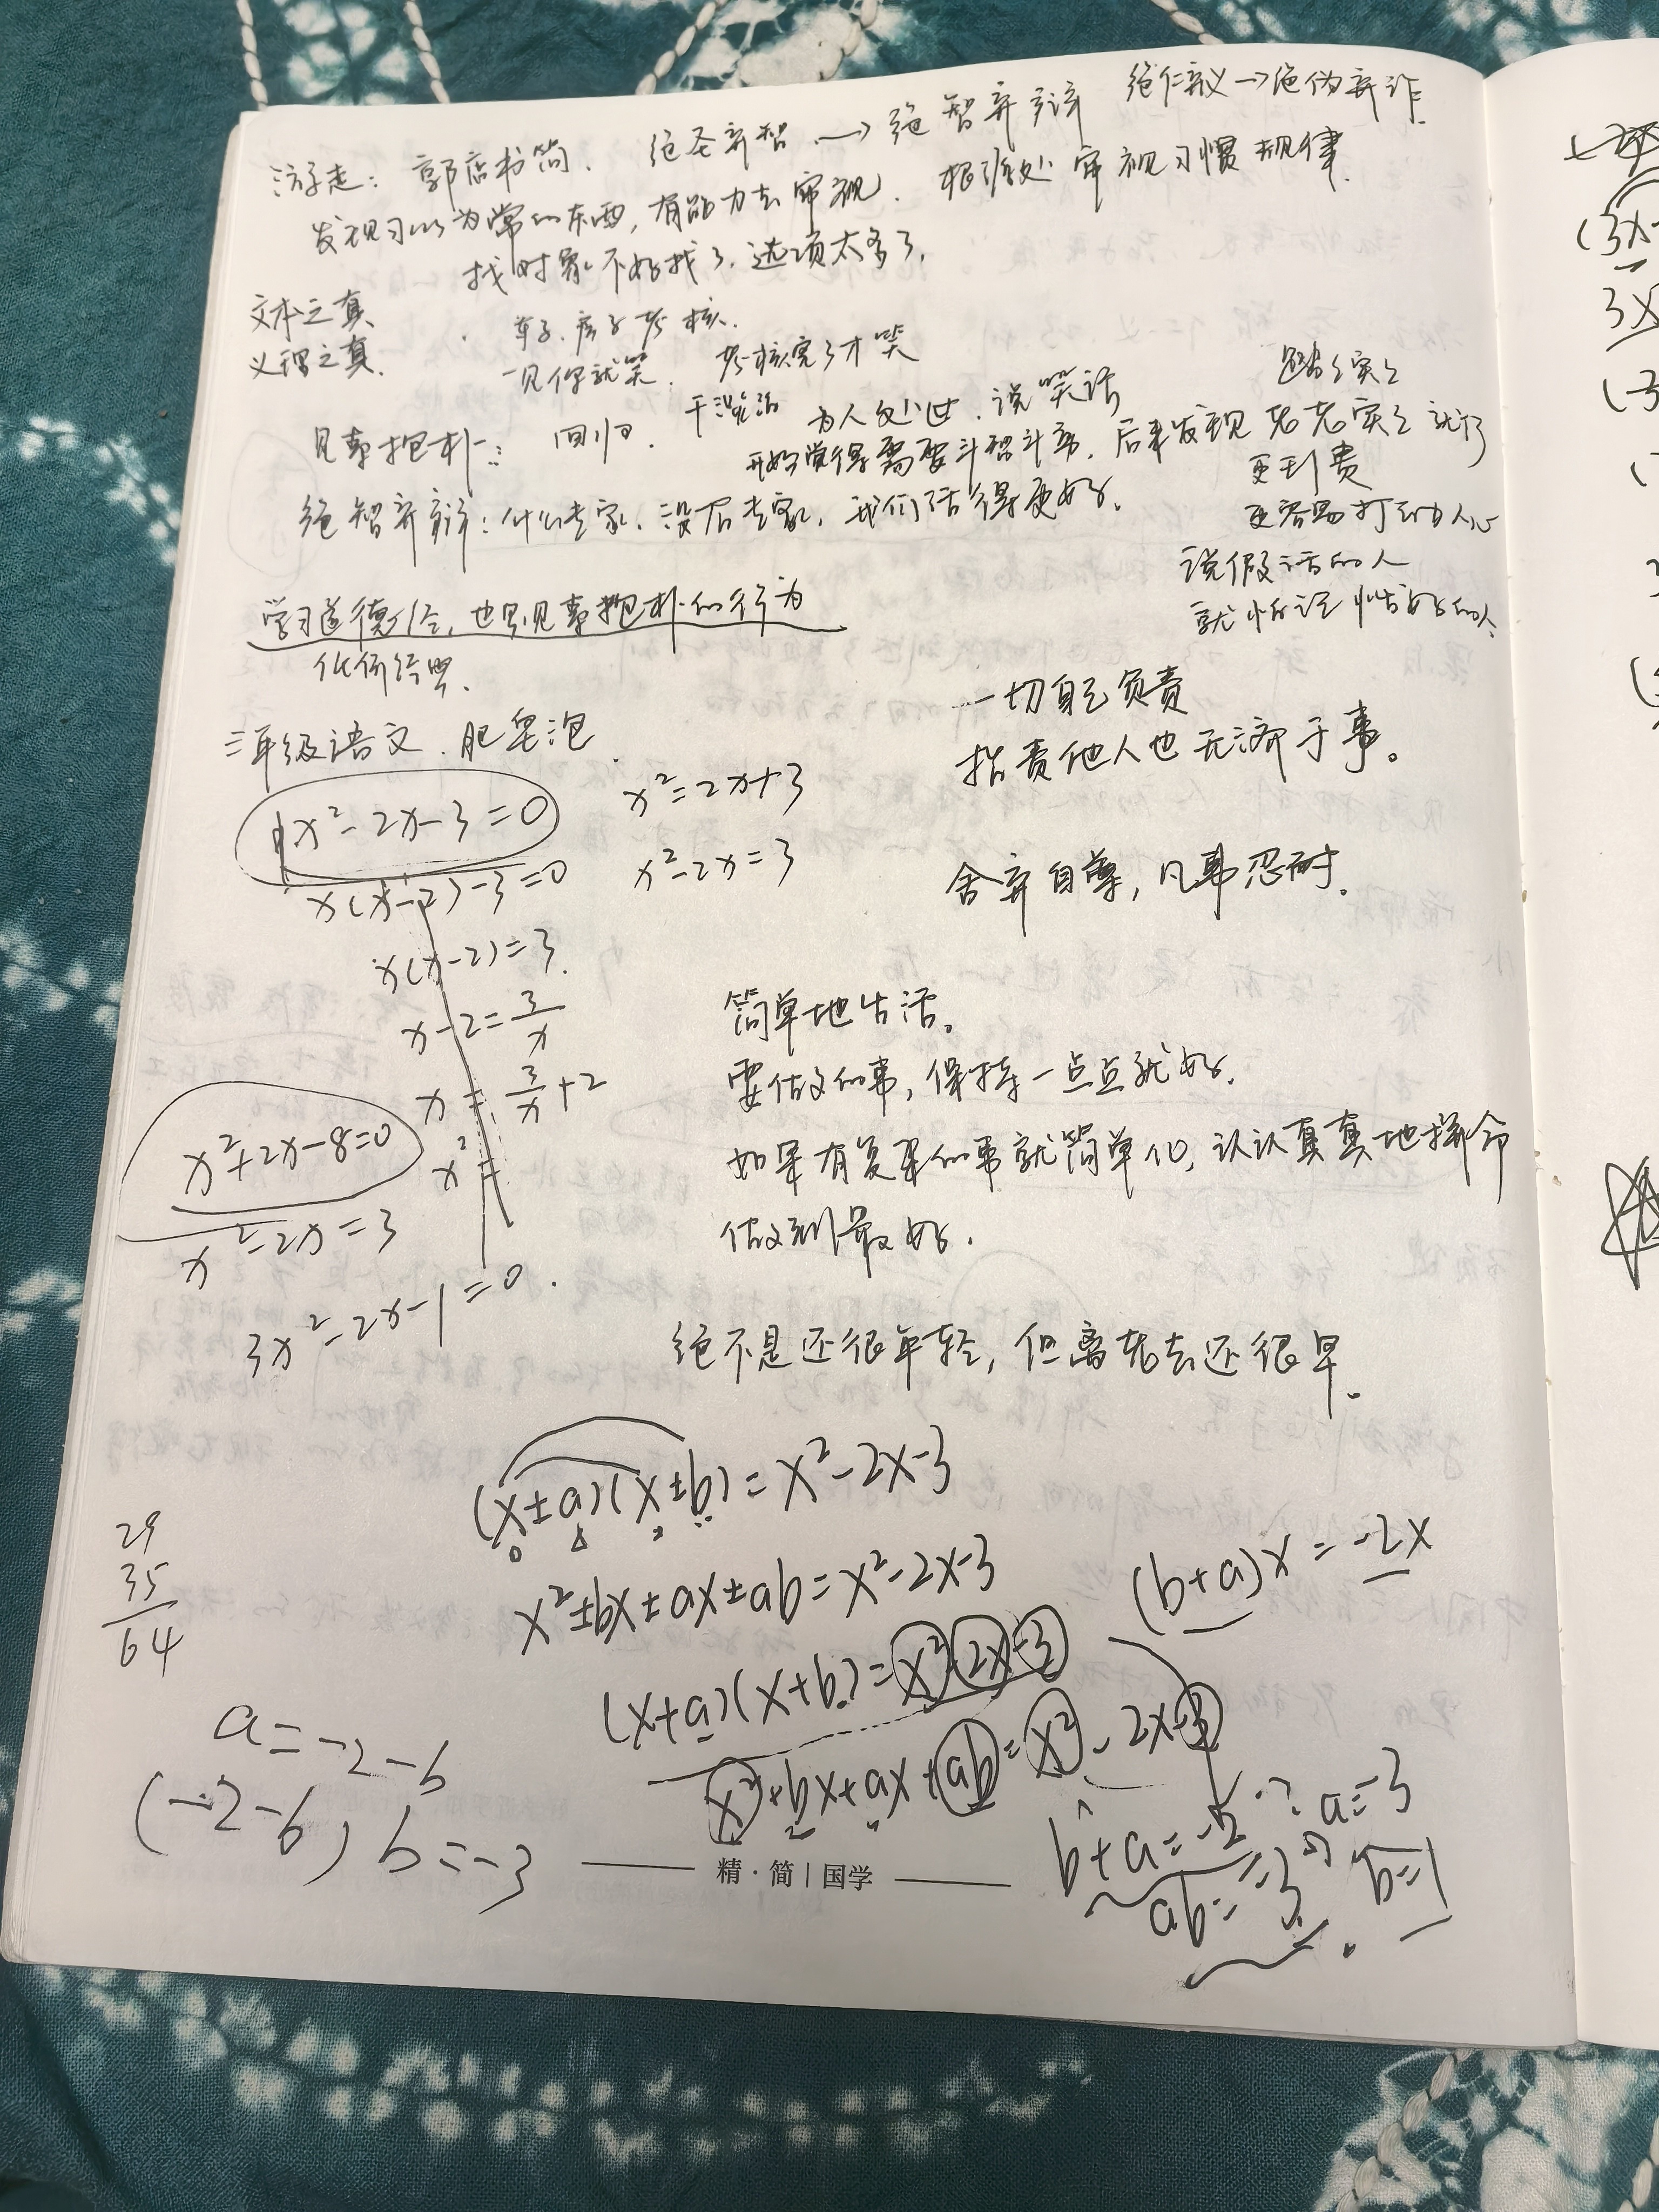 郭店书简. 绝圣弃智 → 绝智弃辩 绝仁弃义 → 绝伪弃诈.
发现习以为常的东西, 有能力去审视. 根源处审视习惯规律.
找对象不好找了. 选项太多了.
文本之真
义理之真.
车子. 房子考核.
一见你就笑. 考核完了才笑
见素抱朴: 回归. 干湿活 为人处世. 说笑话
踏踏实实
开始觉得需要斗智斗勇. 后来发现老老实实就行
更到貴
更容易打动人心
绝智弃辩: 什么专家. 没有专家, 我们活得更好.
说假话的人
就怕记性好的人
学习道德经, 也是见素抱朴的行为
三年级语文. 肥皂泡.
一切自己负责
指责他人也无济于事。
x²-2x-3=0
x²=2x+3
x(x-2)-3=0
x²-2x=3
舍弃自尊, 凡事忍耐.
x(x-2)=3.
x-2=3/x
x=3/x+2
x²=
简单地生活。
要做的事, 保持一点点就好.
如果有复杂的事就简单化, 认认真真地拼命
做到最好.
x²+2x-8=0
x²-2x=3
3x²-2x-1=0.
绝不是还很年轻, 但离老去还很早.
(x±a)(x±b)=x²-2x-3
x²±bx±ax±ab=x²-2x-3
(b+a)x=-2x
29
35
64
(x+a)(x+b)=x²-2x-3
x²+bx+ax+ab=x²-2x-3
b+a=-2
ab=-3
a=-3
b=1
a=-2-b
(-2-b)b=-3
精·简|国学
(3x-
3x
(-3